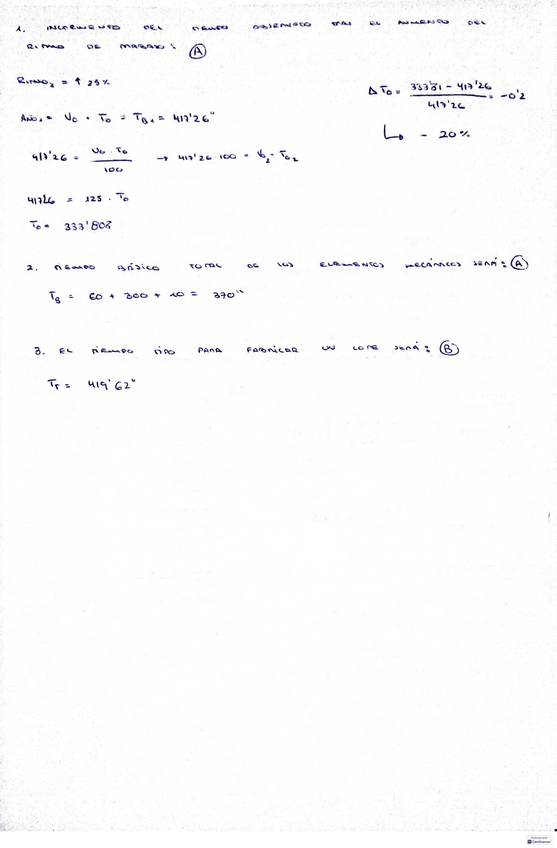 1. INCREMENTO DEL TIEMPO OBSERVADO TRAS EL AUMENTO DEL
RITMO DE TRABAJO: (A)
RITMO₂ = ↑ 25%
ΔTo = 333'81 - 417'26 / 417'26 = -0'2
↳ - 20%
AÑO₁ = Vo · To = TB₁ = 417'26"
417'26 = Vo · To / 100 → 417'26 · 100 = V₂ · To₂
41726 = 125 · To
To = 333'808
2. TIEMPO BÁSICO TOTAL DE LOS ELEMENTOS MECÁNICOS SERÁ: (A)
TB = 60 + 300 + 10 = 370"
3. EL TIEMPO TIPO PARA FABRICAR UN LOTE SERÁ: (B)
TT = 419'62"
CamScanner